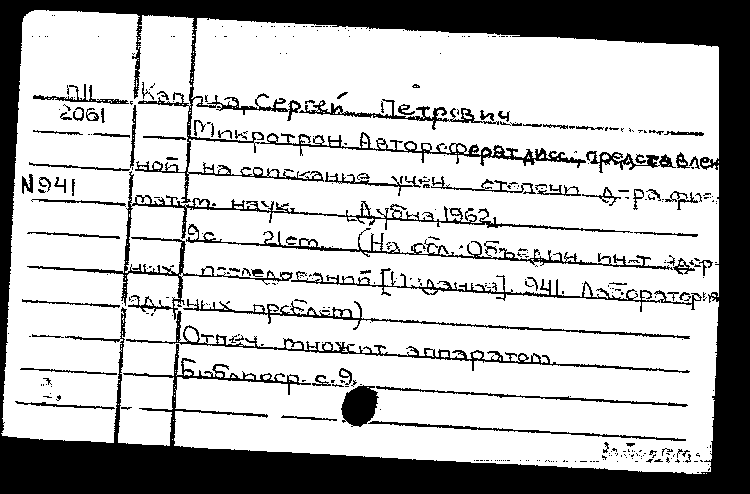 П11 Капица, Сергей Петрович
2061
Микротрон. Автореферат дисс., представлен-
ной на соискание учен. степени д-ра физ.-
N941
матем. наук. [Дубна, 1962].
9с. 21см. (На обл.: Объедин. ин-т ядер-
ных исследований. [Издания]. 941. Лаборатория
ядерных проблем)
Отпеч. множит. аппаратом.
Библиогр. с.9.